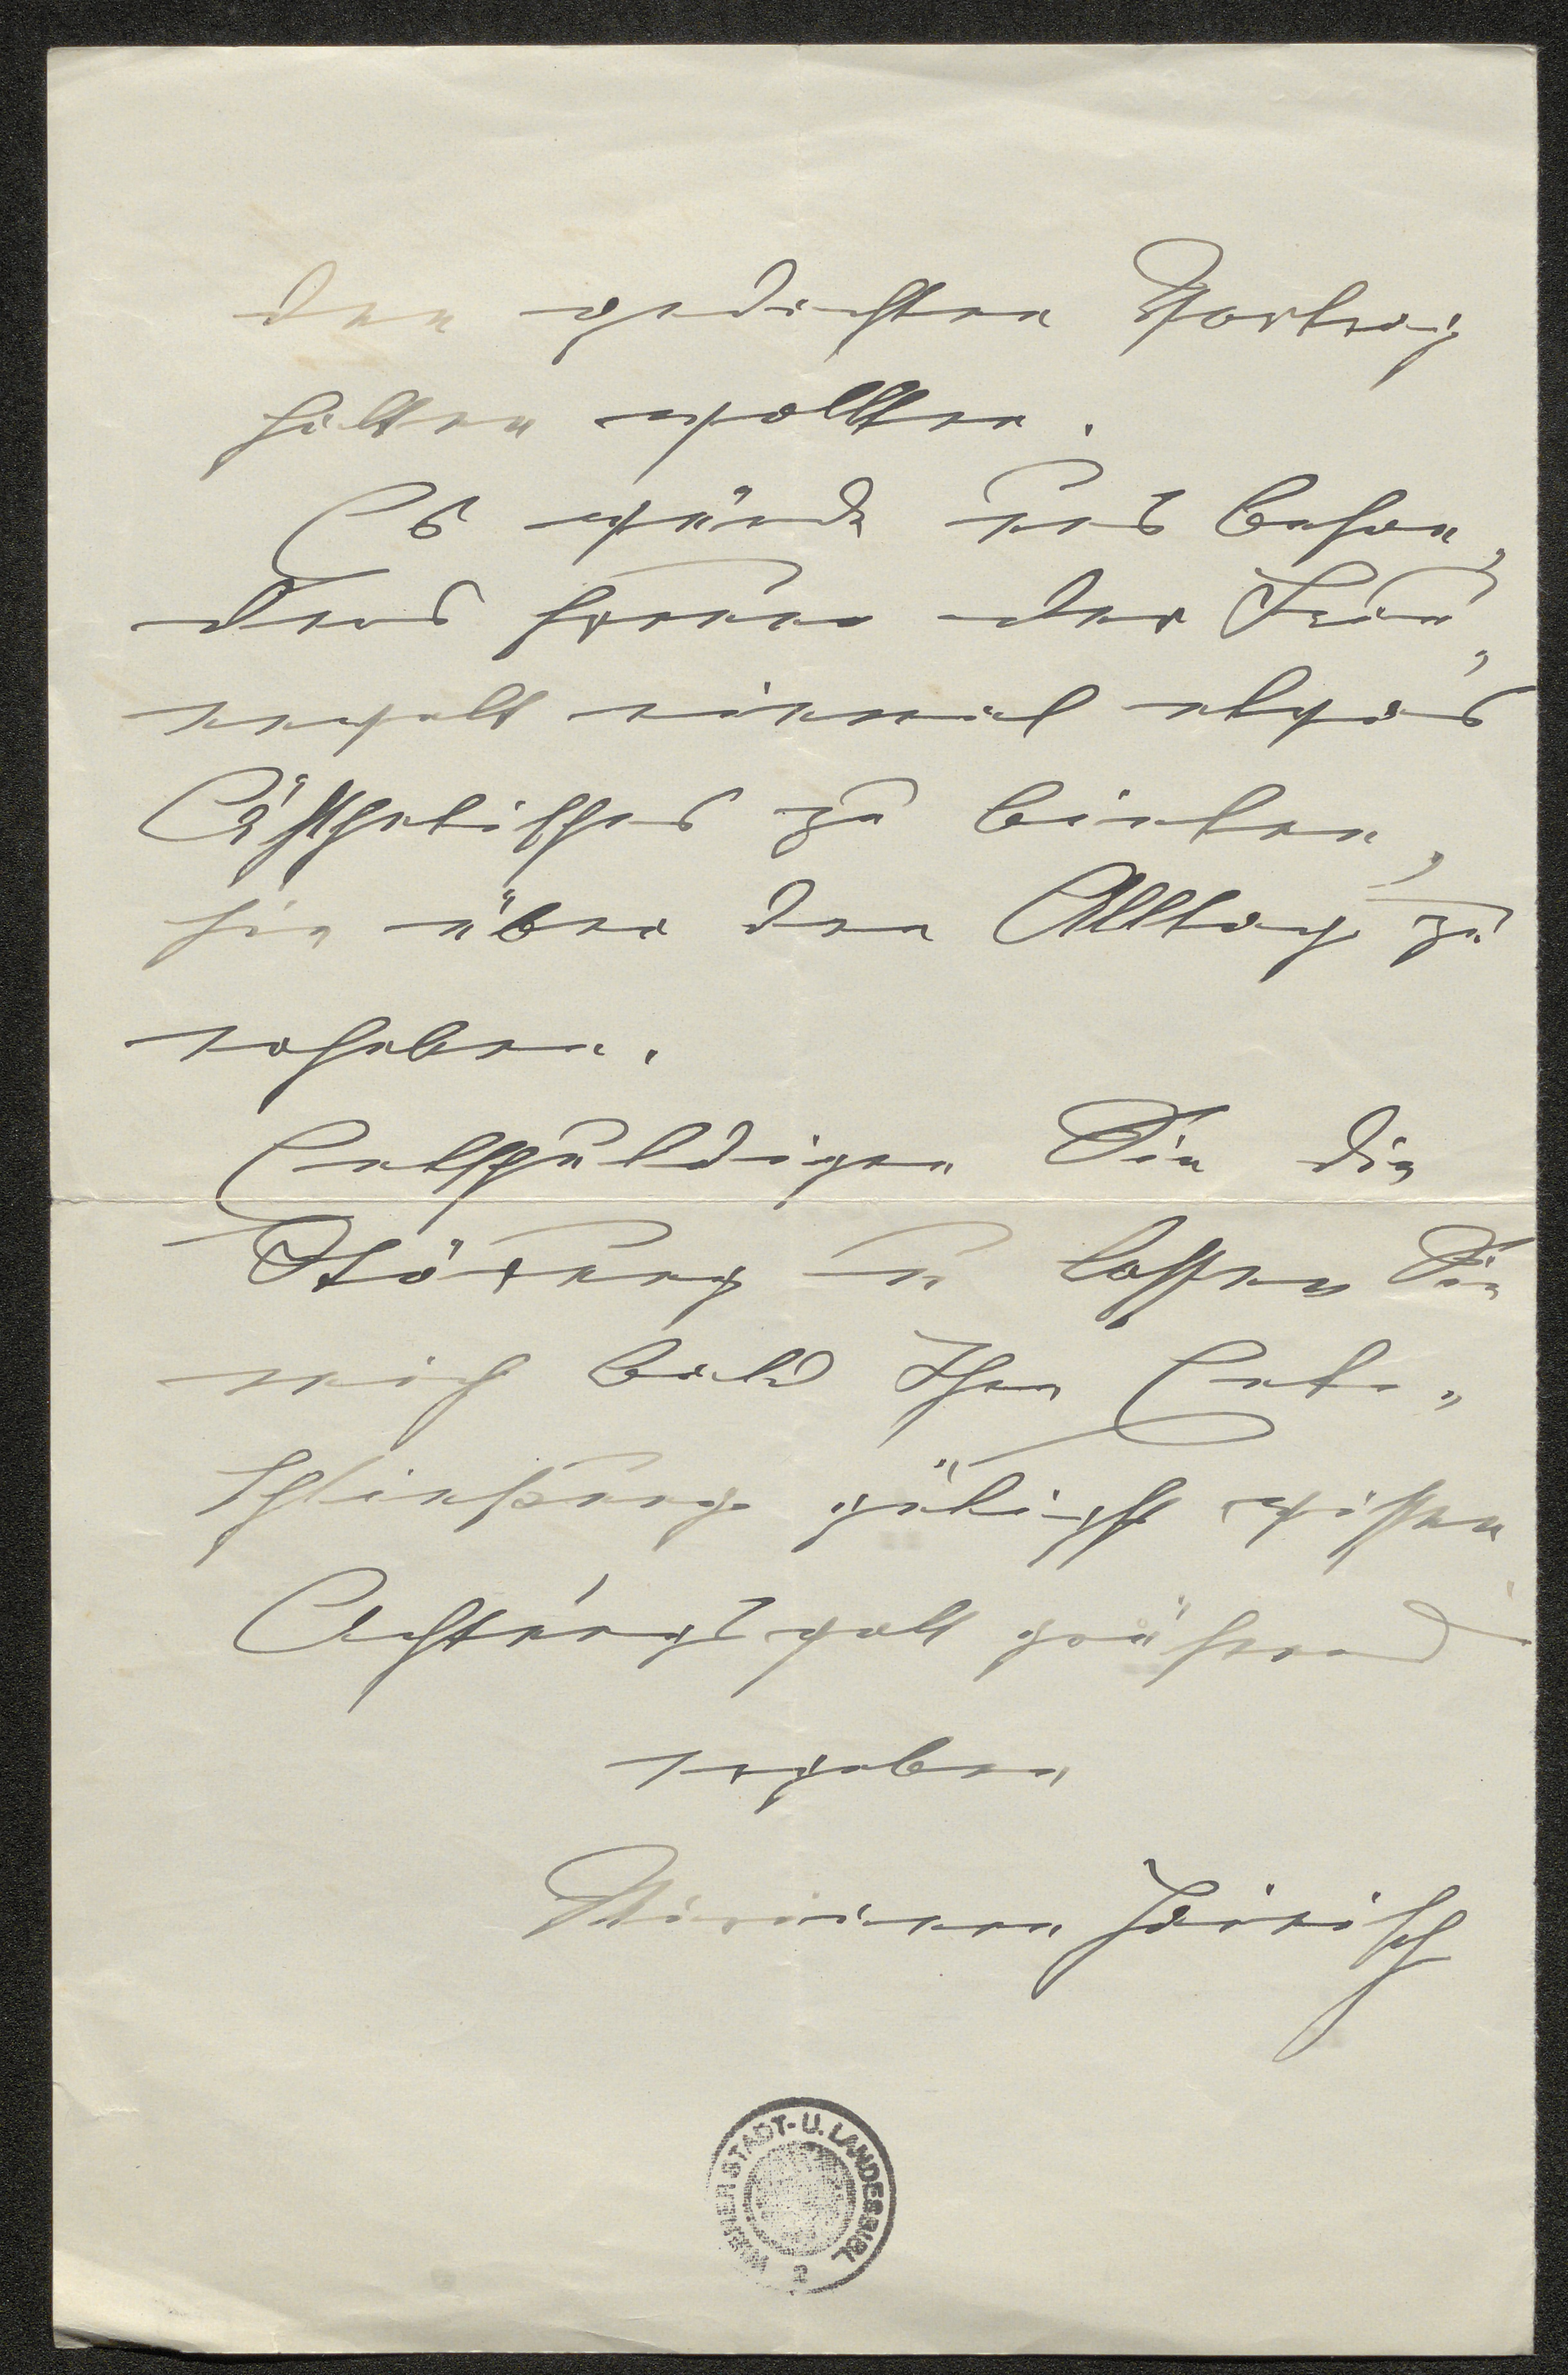 den gedachten Vortrag
halten wollten.
Es würde uns beson„
ders freuen der Frau„
enwelt einmal etwas
Ästhetisches zu bieten,
sie über den Alltag zu
erheben.
Entschuldigen Sie die
Störung u lassen Sie
mich bald Ihre Ent„
schließung gütigst wissen
Achtungsvoll grüßend
ergeben
Marianne Hainisch
WIENER STADT-U. LANDESBIBL
2